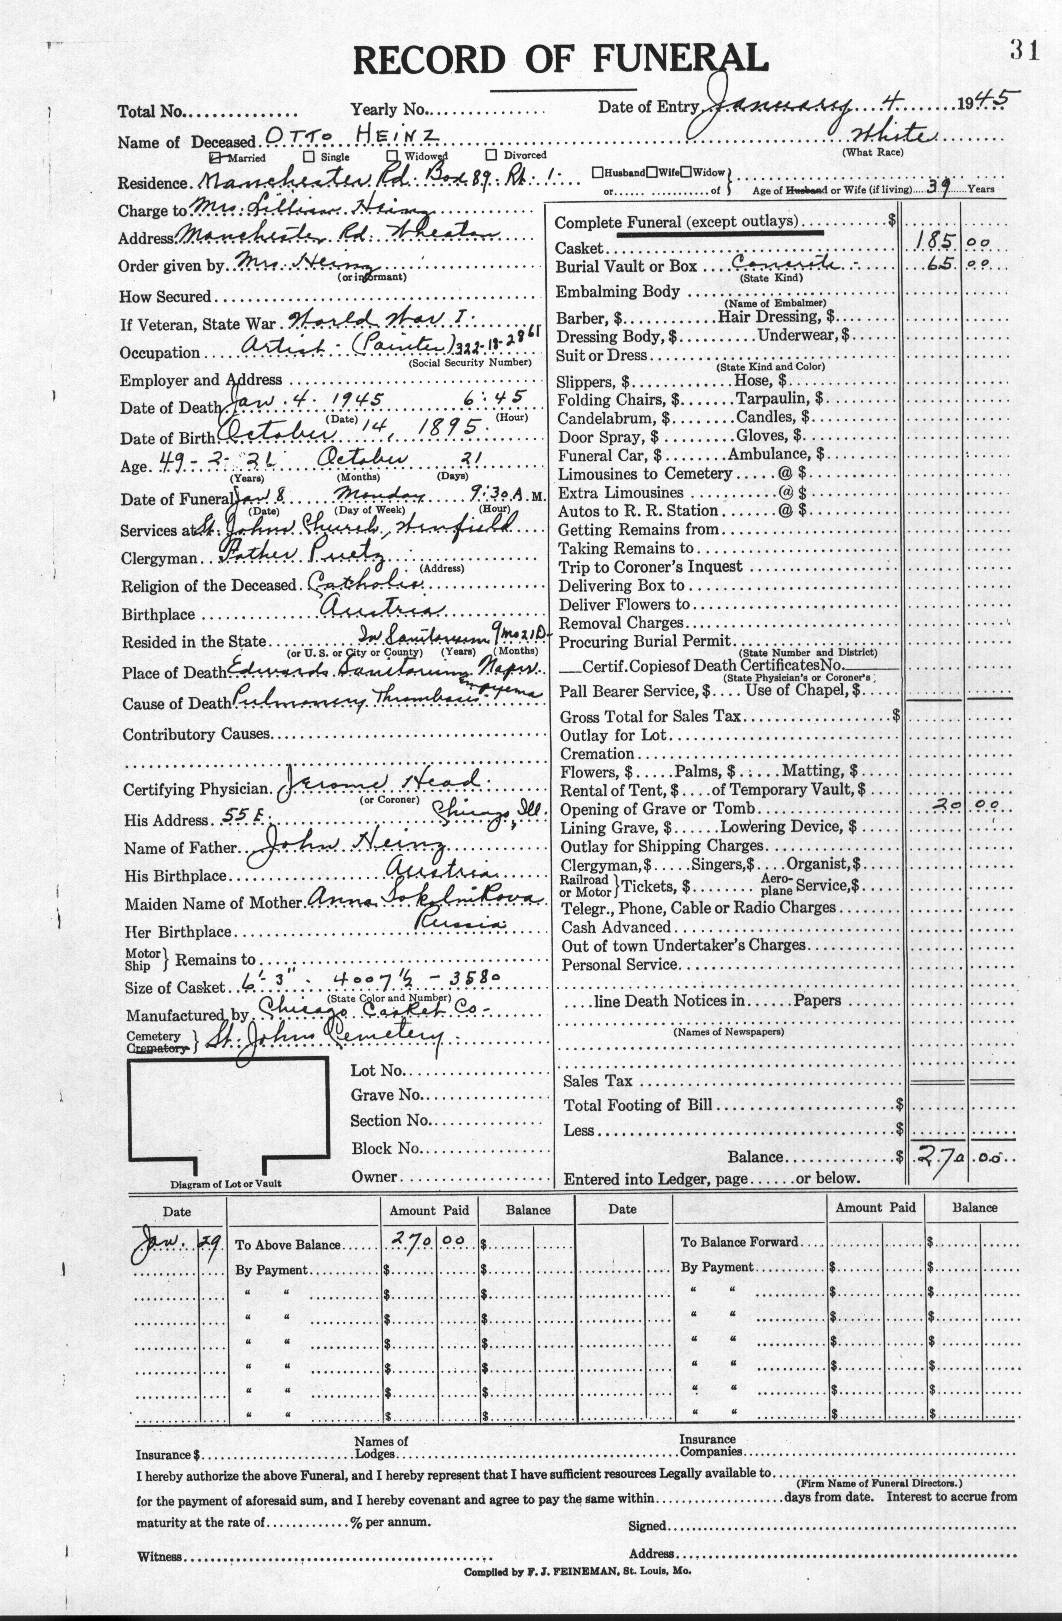 31
RECORD OF FUNERAL
Total No. Yearly No. Date of Entry January 4 1945
Name of Deceased OTTO HEINZ White
Married Single Widowed Divorced (What Race)
Residence Manchester Rd. Box 89. Rt. 1. Husband Wife Widow or of Age of Husband or Wife (if living) 39 Years
Charge to Mrs. Lillian Heinz
Address Manchester Rd. Wheaton
Order given by Mrs. Heinz
(or informant)
How Secured
If Veteran, State War World War I.
Occupation Artist - (Painter) 322-18-2861
(Social Security Number)
Employer and Address
Date of Death Jan. 4. 1945 6:45
(Date) (Hour)
Date of Birth October 14, 1895.
Age 49-2-21 October 21
(Years) (Months) (Days)
Date of Funeral Jan 8 Monday 9:30 A.M.
(Date) (Day of Week) (Hour)
Services at St. Johns Church, Winfield
Clergyman Father Puetz
(Address)
Religion of the Deceased Catholic
Birthplace Austria
Resided in the State In Sanitarium 9 mo 21 D-
(or U. S. or City or County) (Years) (Months)
Place of Death Edwards Sanitarium Naper.
Cause of Death Pulmonary Thrombosis Empyema
Contributory Causes
Certifying Physician Jerome Head.
(or Coroner)
His Address 55 E. Chicago, Ill.
Name of Father John Heinz
His Birthplace Austria
Maiden Name of Mother Anna Sokolnikova
Her Birthplace Russia
Motor Ship } Remains to
Size of Casket 6'-3" 4007½ - 3580
(State Color and Number)
Manufactured by Chicago Casket Co-
Cemetery Crematory } St. Johns Cemetery.
Lot No.
Grave No.
Section No.
Block No.
Owner
Diagram of Lot or Vault
Complete Funeral (except outlays) $
Casket 185 00
Burial Vault or Box Concrete - 65 00
(State Kind)
Embalming Body
(Name of Embalmer)
Barber, $ Hair Dressing, $
Dressing Body, $ Underwear, $
Suit or Dress
(State Kind and Color)
Slippers, $ Hose, $
Folding Chairs, $ Tarpaulin, $
Candelabrum, $ Candles, $
Door Spray, $ Gloves, $
Funeral Car, $ Ambulance, $
Limousines to Cemetery @ $
Extra Limousines @ $
Autos to R. R. Station @ $
Getting Remains from
Taking Remains to
Trip to Coroner's Inquest
Delivering Box to
Deliver Flowers to
Removal Charges
Procuring Burial Permit
(State Number and District)
Certif. Copies of Death Certificates No.
(State Physician's or Coroner's)
Pall Bearer Service, $ Use of Chapel, $
Gross Total for Sales Tax $
Outlay for Lot
Cremation
Flowers, $ Palms, $ Matting, $
Rental of Tent, $ of Temporary Vault, $
Opening of Grave or Tomb 20 00
Lining Grave, $ Lowering Device, $
Outlay for Shipping Charges
Clergyman, $ Singers, $ Organist, $
Railroad or Motor } Tickets, $ Aero-plane Service, $
Telegr., Phone, Cable or Radio Charges
Cash Advanced
Out of town Undertaker's Charges
Personal Service
line Death Notices in Papers
(Names of Newspapers)
Sales Tax
Total Footing of Bill $
Less $
Balance $ 270.00
Entered into Ledger, page or below.
Date Amount Paid Balance Date Amount Paid Balance
Jan. 29 To Above Balance 270 00 $ To Balance Forward $
By Payment $ $ By Payment $ $
" " $ $ " " $ $
" " $ $ " " $ $
" " $ $ " " $ $
" " $ $ " " $ $
" " $ $ " " $ $
" " $ $ " " $ $
Insurance $ Names of Lodges Insurance Companies
I hereby authorize the above Funeral, and I hereby represent that I have sufficient resources Legally available to
(Firm Name of Funeral Directors.)
for the payment of aforesaid sum, and I hereby covenant and agree to pay the same within days from date. Interest to accrue from
maturity at the rate of % per annum.
Signed
Witness Address
Compiled by F. J. FEINEMAN, St. Louis, Mo.